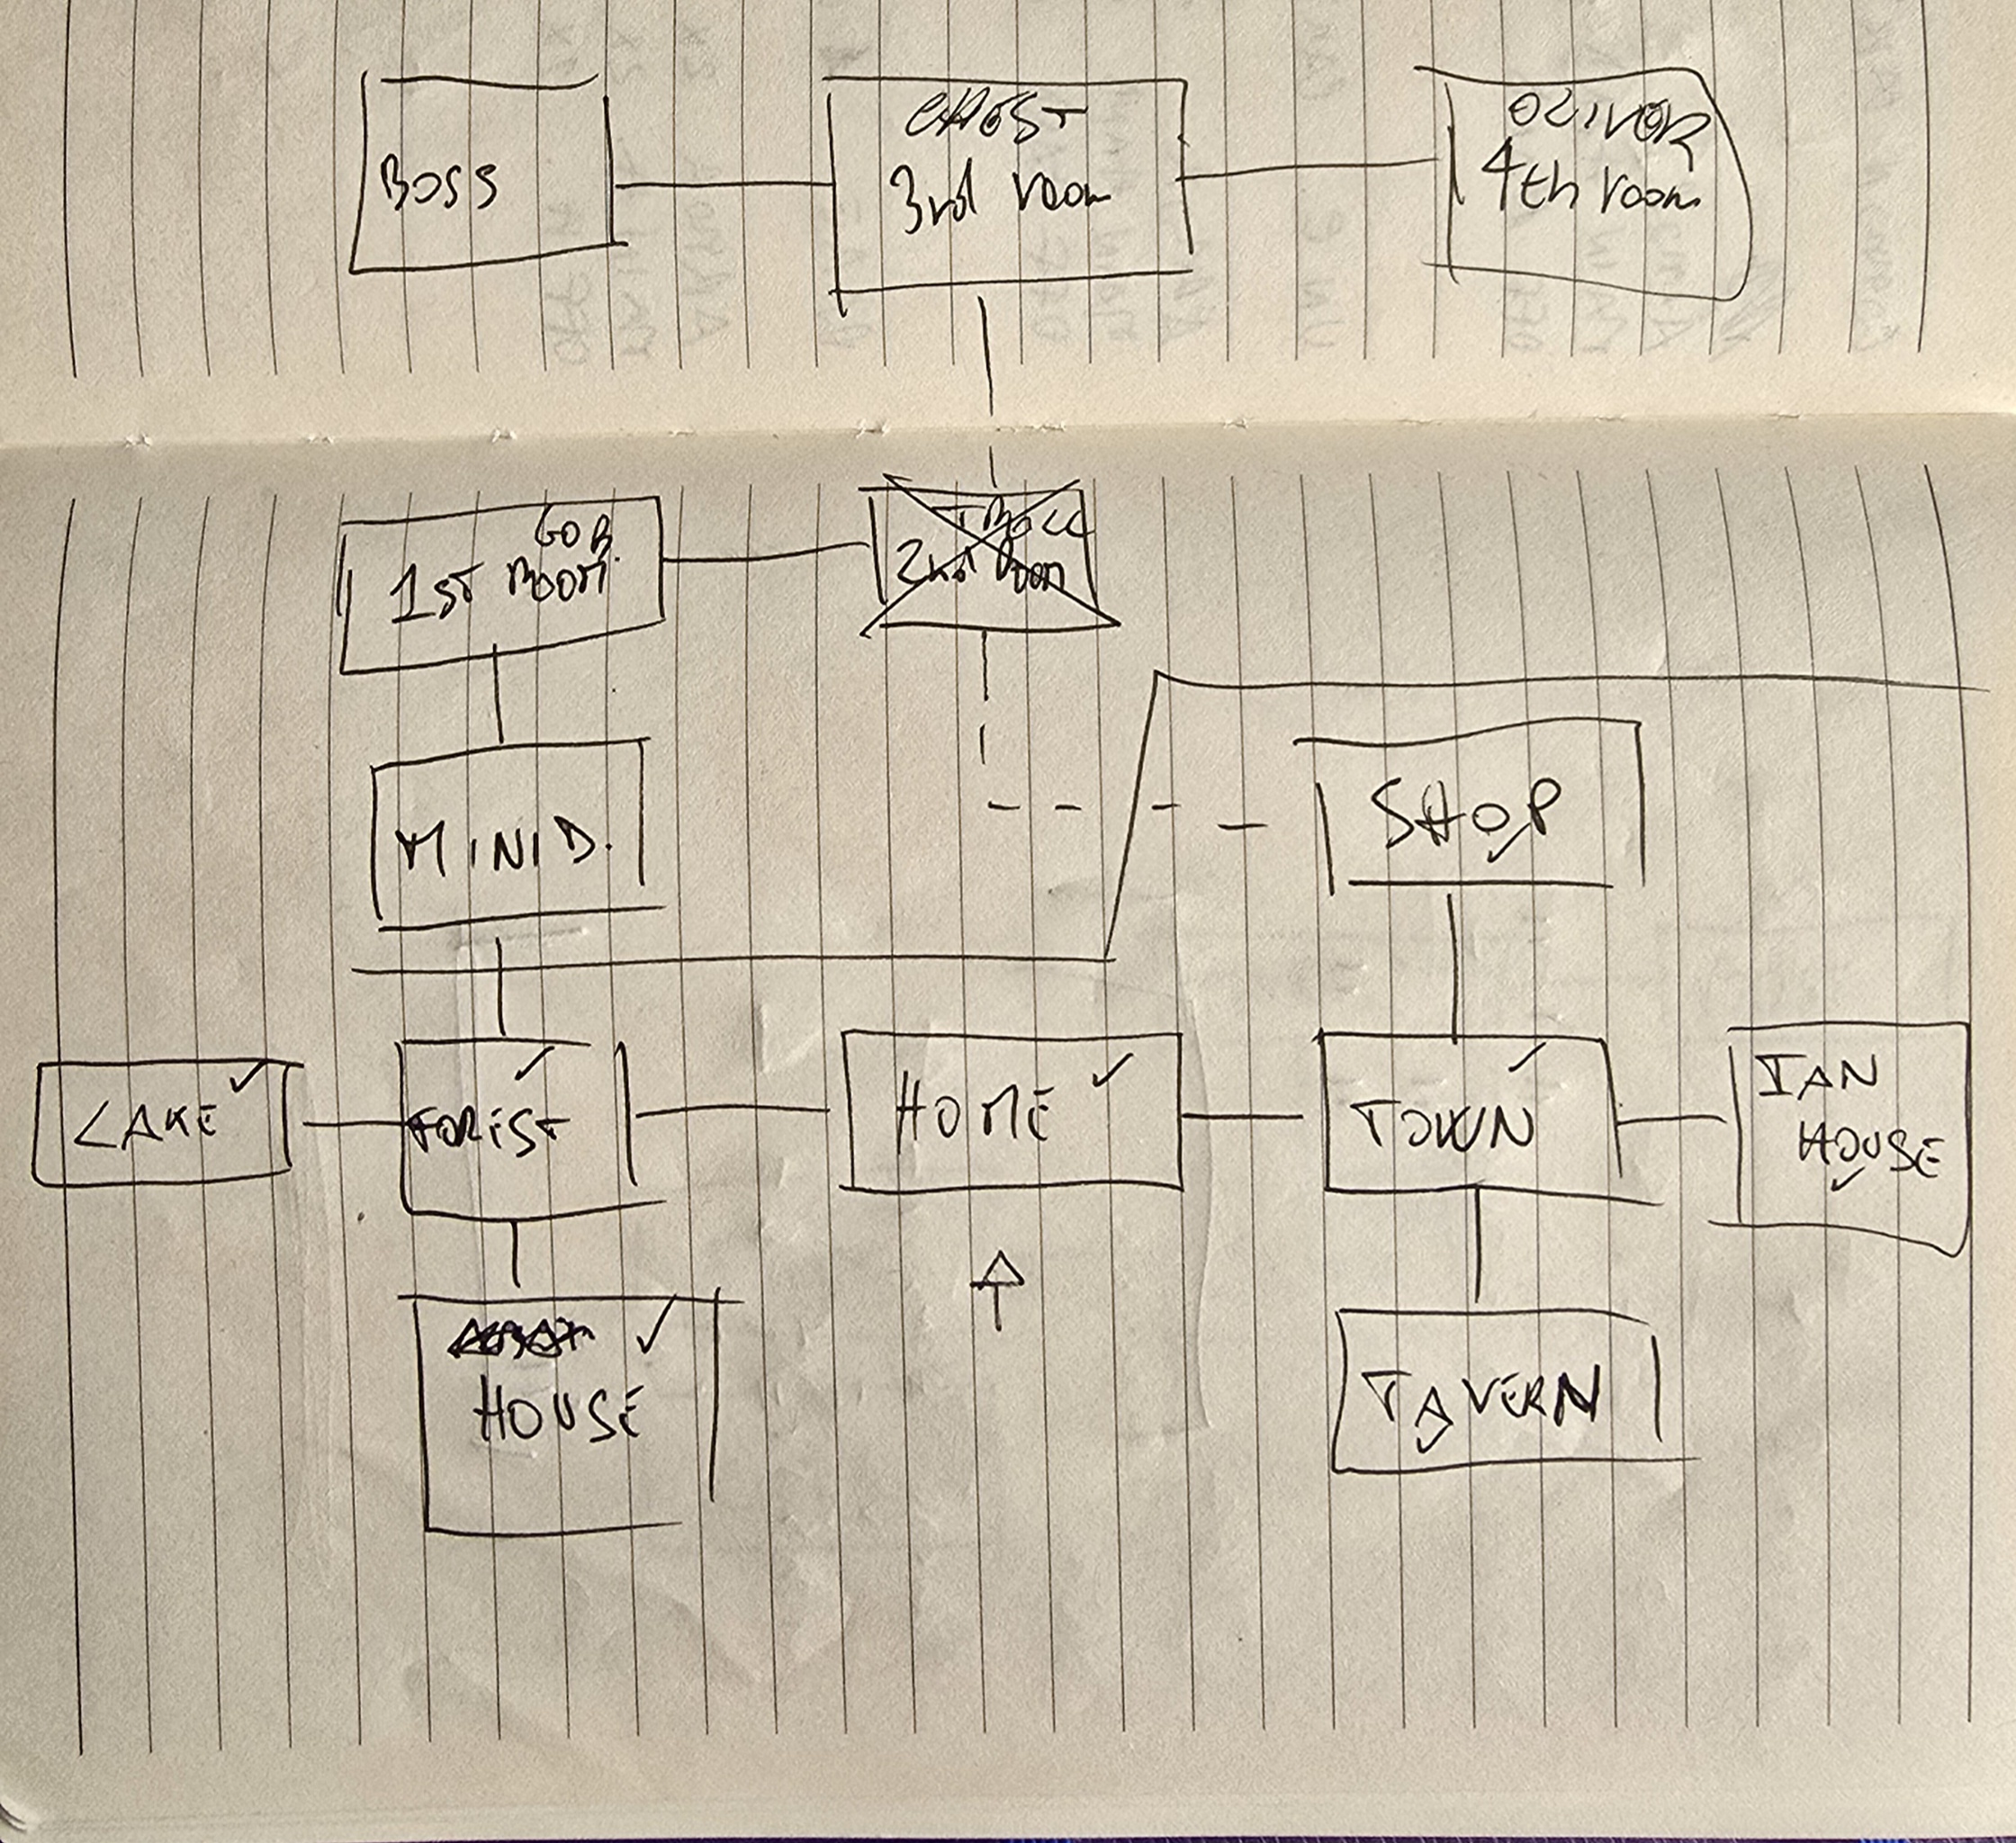 BOSS
GHOST
3rd room
OLIVER
4th room
GOB.
1ST ROOM
TROLL
2nd Room
MINID.
SHOP
LAKE
FOREST
HOME
TOWN
IAN
HOUSE
HOUSE
TAVERN